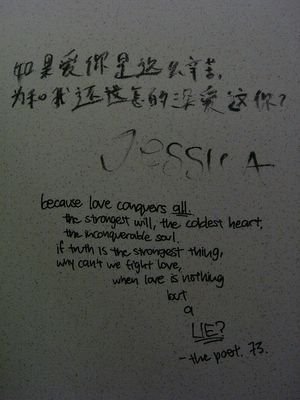 如果爱你是这么辛苦,
为和我还这怎的深爱这你?
JESSICA
because love conquers all.
the strongest will, the coldest heart,
the inconquerable soul.
if truth is the strongest thing,
why can't we fight love,
when love is nothing
but
a
LIE?
- the poet. 73.